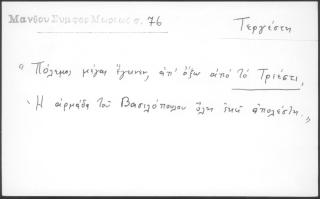 Μανθου Συμφορ Μωρεως σ. 76
Τεργέστη
" Πόλεμος μέγας ἔγινεν, ἀπ' ὄξω ἀπό τό Τριέστι,
Ἡ ἁρμάδα τοῦ Βασιλόπουλου ὅλη ἐκεῖ ἀπολέστη. "